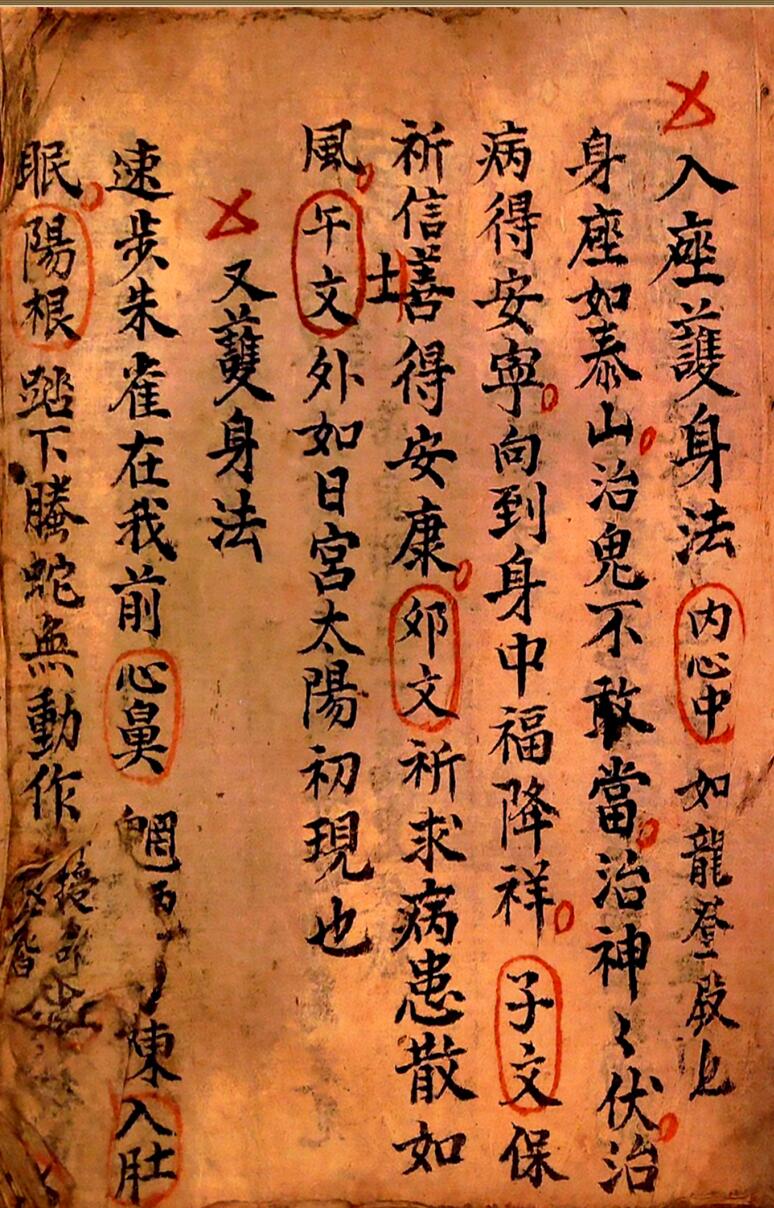 入座護身法内心中如龍登殿上
身座如泰山治鬼不敢當治神〻伏治
病得安寧向到身中福降祥子文保
祈信士善得安康卯文祈求病患散如
風午文外如日宮太陽初現也
又護身法
速步朱雀在我前心鼻 陳入肚
眠陽根踏下螣蛇無動作